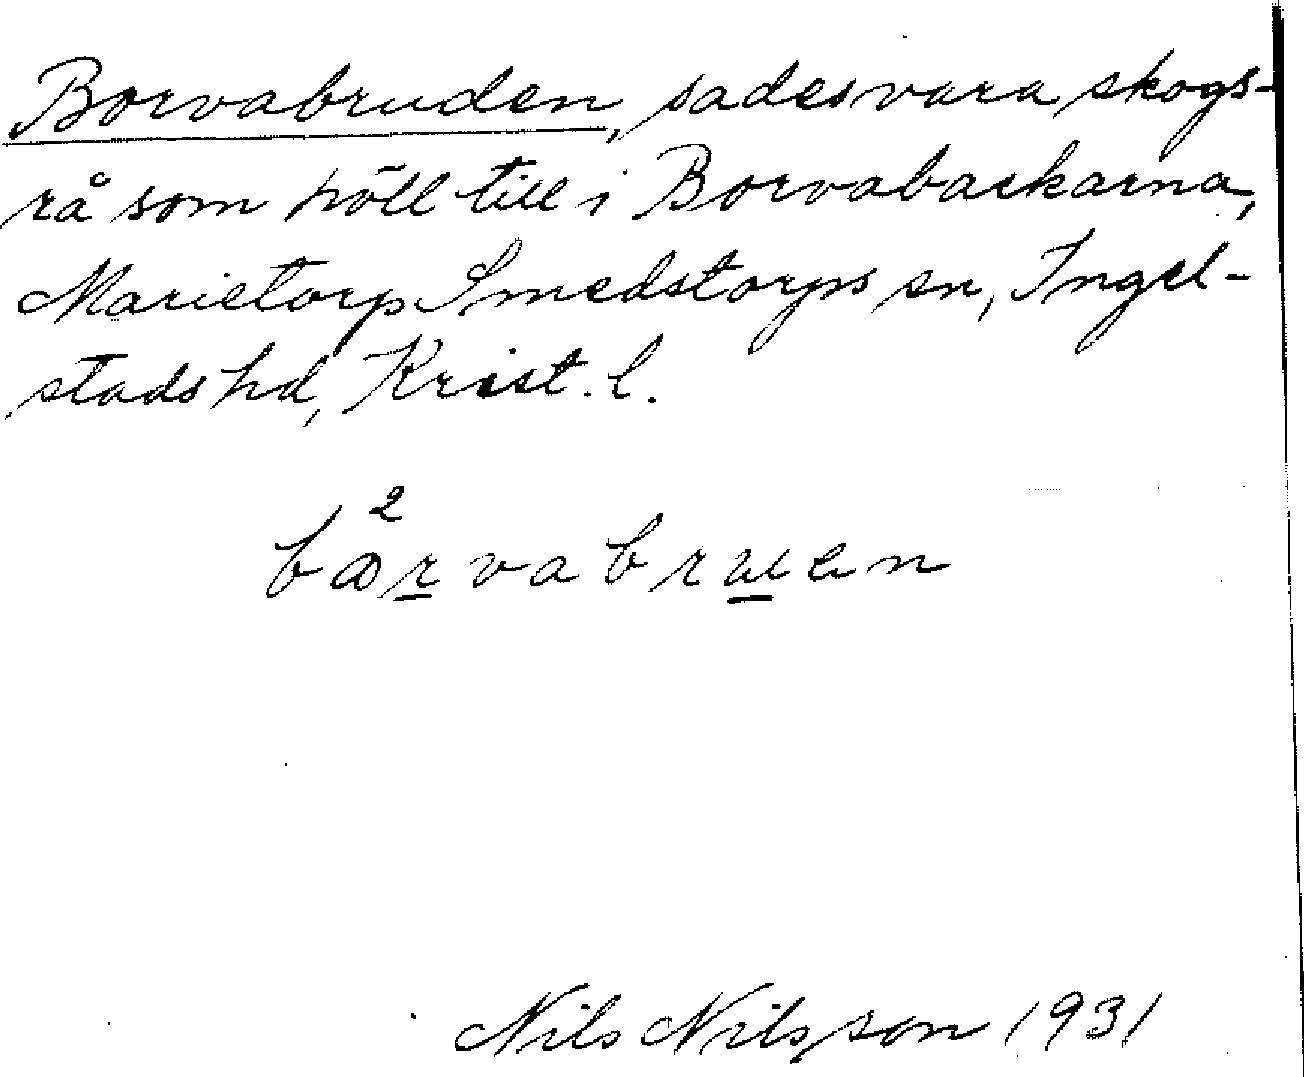 Borvabruden, sades vara skogs-
rå som höll till i Borvabackarna,
Marietorp Smedstorps sn, Ingel-
stads hd, Krist. l.
2
bårvabruen
Nils Nilsson 1931